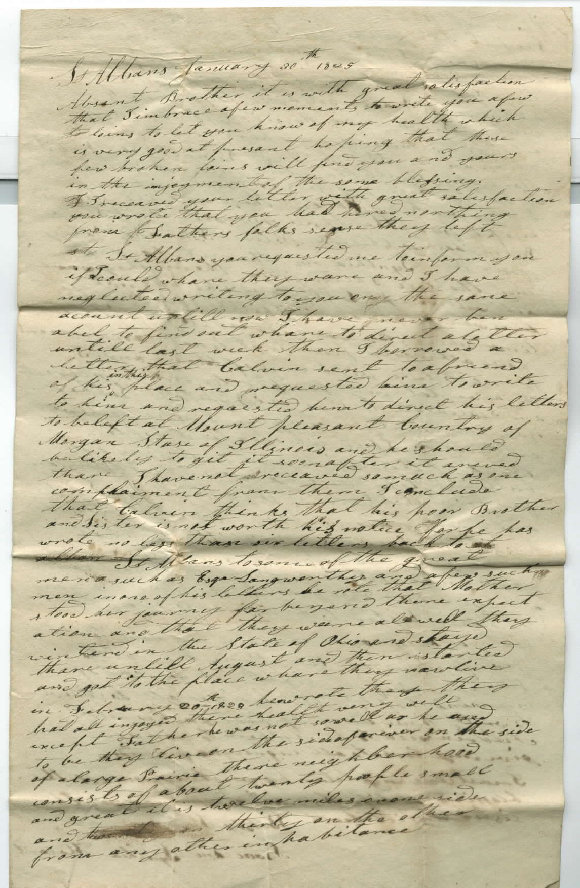 St Albans January 30th 1825
Absant Brother it is with great satisfaction
that I imbrace a few moments to write you a few
loins to let you know of my health which
is very good at presant hoping that these
few broken loins will find you and yours
in the injoyment of the same blessing.
I receaved your letter with great satisfaction
you wrote that you had hered northing
from Fathers folks sense they left
St Albans you requested me to inform you
if I could whare they ware and I have
neglected writing to you on the same
acount untill now I have never ben
abel to find out whare to direct a letter
untill last week then I borrowed a
letter that Calvin sent to a friend
in this
of his place and requested him to write
to him and requested him to direct his letters
to be left at Mount pleasant Country of
Morgan State of Illinois and he should
be likely to git it soon after it areved
thare I have not receaved so mach as one
complaiment from them I conclude
that Calvin thinks that his poor Brother
and Sister is not worth his notice
wrote no less than six letters back to
St Albans to some of the great
men such as Esqr and a few such
men in one of his letters he rote that Mother
stood her journey far beyond there expect
ation and that they ware all well they
wintered in the State of Ohio and stayed
there untill August and then started
and got to the place whare they now live
in February 20th he wrote they they
had all injoyed there health very well
except Father he was not so well as he
to be they live on the side of a river on the side
of a large Prairie there neighbor hood
consists of about twenty people small
and great it is twelve miles on one side
and thirty on the other
from any other inhabitance